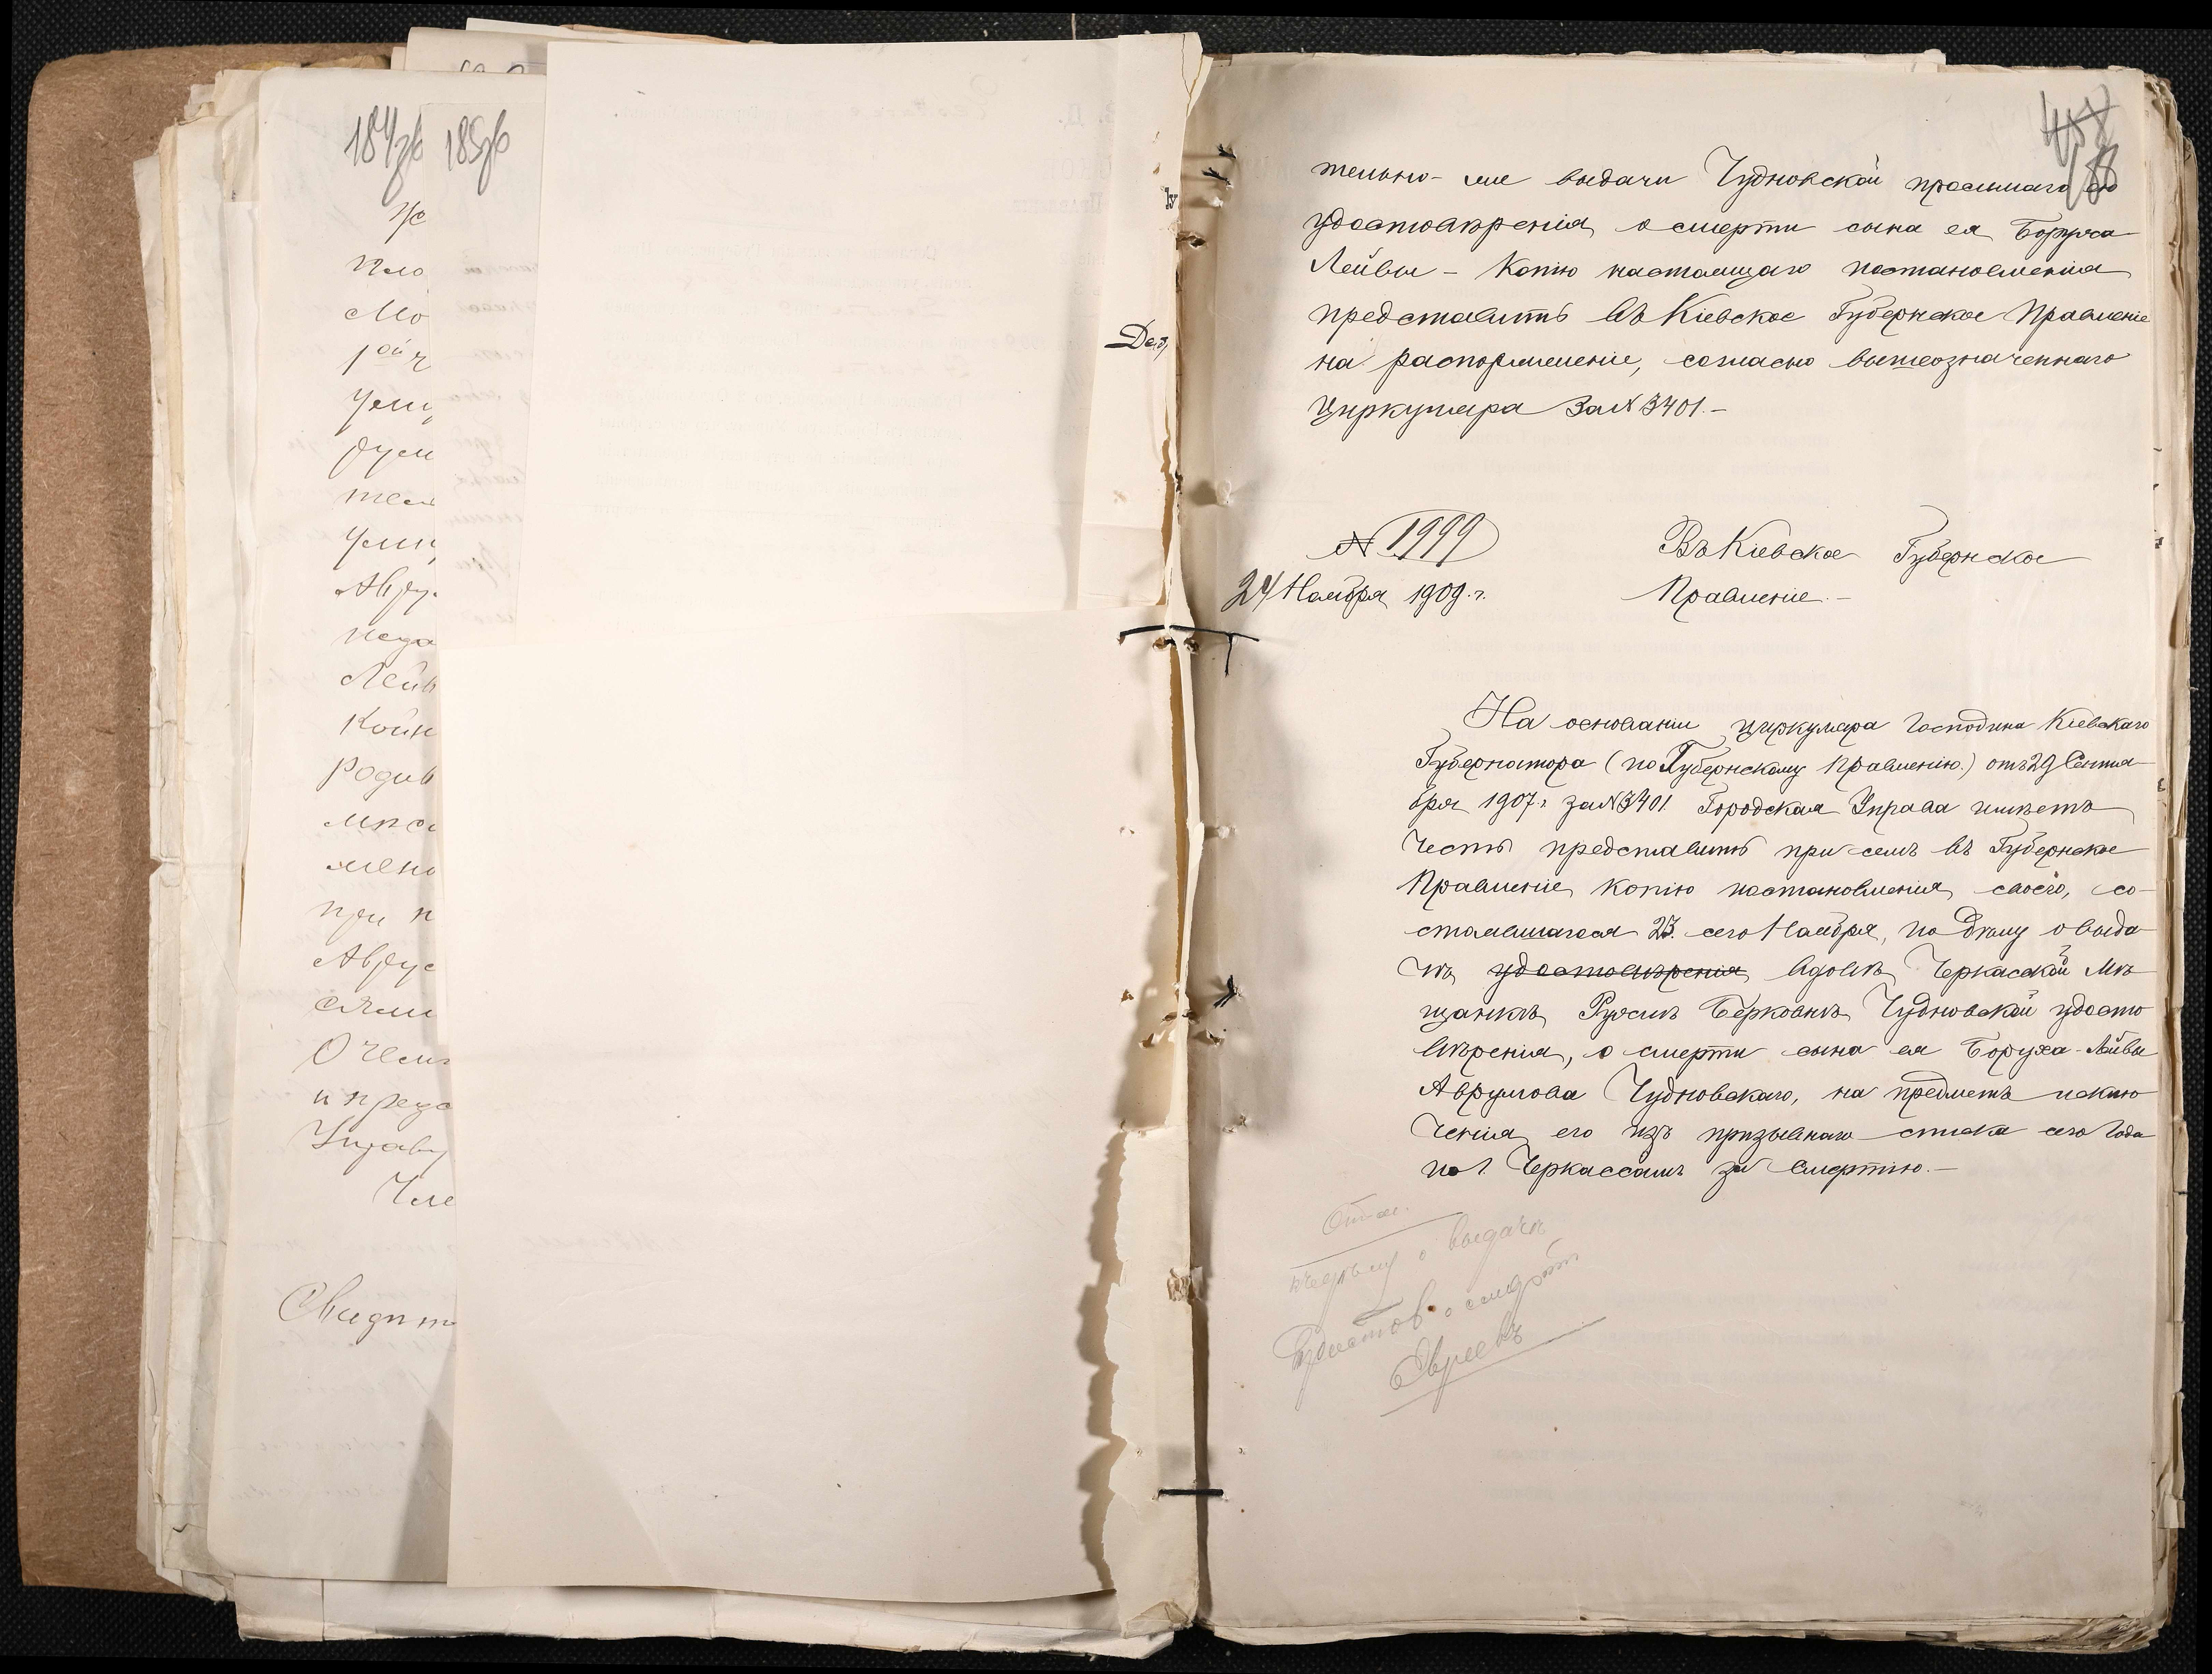 184об
185об
Пло
Мо
1ой ч
Авру
Лейв
Койн
родив
мѣся
при п
Авру
О чем
и предс
Управу
Чле
Свидѣт
Дѣ
458
188
тельно-же выдачи Чудновской просимаго ею
удостовѣренія о смерти сына ея Боруха
Лейбы – Копію настоящаго постановленія
представить въ Кіевское Губернское Правленіе
на распоряженіе, согласно вышеозначеннаго
циркуляра за № 3401.–
№ 1999
24 Ноября 1909 г.
Въ Кіевское Губернское
Правленіе.–
На основаніи циркуляра Господина Кіевскаго
Губернатора (по Губернскому Правленію) отъ 29 Сентя-
бря 1907 г. за № 3401 Городская Управа имѣетъ
честь представить при семъ въ Губернское
Правленіе копію постановленія своего, со-
стоявшагося 23 сего Ноября, по дѣлу о выда-
чѣ удостовѣренія вдовѣ Черкасской мѣ-
щанкѣ Рухлѣ Берковнѣ Чудновской удосто
вѣренія, о смерти сына ея Боруха-Лейбы
Аврумова Чудновскаго, на предметъ исклю
ченія его изъ призывнаго списка сего года
по г. Черкассамъ за смертію.–
къ дѣлу о выдачѣ
удостов. о смерти
Евреевъ